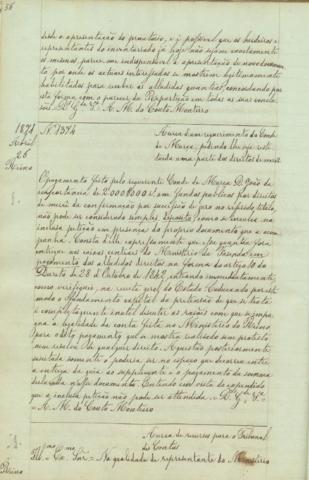 desde a apresentação do precatorio, e é possivel que os herdeiros e
representantes do inventariado já hoje não sejam exactamente
os mesmos, parece-me indispensavel a apresentação de novo documento
por onde os actuaes interessados se mostrem legitimamente
habilitados para receber as alludidas quantias, concordando por
esta forma com o parecer da Repartição em todas as suas conclu
sões. D.s G.e V.a A. M. do Couto Monteiro
1871
Abril
26
Reino
N.o 1374
Ácerca d'um requerimento do Conde
de Murça, pedindo lhe seja resti
tuida uma parte dos direitos de mercê
O pagamento feito pelo requerente Conde de Murça D. João da
importancia de 2.000$000 em fundos publicos por direitos
de mercê da confirmação por successão de juro no referido titulo,
não pode ser considerado simples deposito como se
inculca petição em presença do proprio documento que a acom
panha. Consta d'elle expressamente que essa quantia fora
entregue nos cofres centraes do Ministerio da Fazenda em
pagamento dos alludidos direitos na forma do artigo 10 do
Decreto de 28 d'Outubro de 1842, entrando
como verifiquei, na receita geral do Estado. Caducando por este
modo o fundamento capital da pretensão de que se trata
é completamente inutil discutir as razões com que se impu
gna a legalidade da conta feita no Ministerio do Reino
para o dito pagamento que se mostra realisado sem protesto
nem resalva de qualquer direito. A questão posteriormente
suscitada somente o poderia ser no espaço que decorreu entre
a entrega da guia ao supplicante e o pagamento da somma
declarada n'esse documento. Entendo em vista do expendido
que a inclusa petição não pode ser attendida = D.s G.e V.a
= A. M. do Couto Monteiro
Ácerca do recurso para o Tribunal
de Contas
Reino
Ill.mo Ex.mo Snr. = Na qualidade de representante do Ministerio